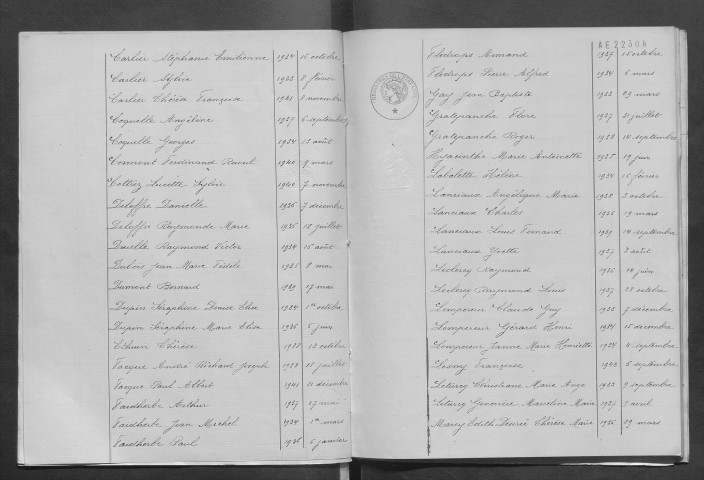 Carlier Stéphanie Emilienne 1924 15 octobre
Carlier Sylvie 1923 8 février
Carlier Thérèse Françoise 1941 8 novembre
Coquelle Angéline 1927 6 septembre
Coquelle Georges 1924 13 août
Cormont Ferdinand Raoul 1940 9 mars
Cottiez Lucette Sylvie 1940 7 novembre
Deleffe Danielle 1936 7 décembre
Deleffe Raymonde Marie 1935 18 juillet
Douelle Raymond Victor 1924 15 août
Dubois Jean Marie Fidèle 1925 8 mai
Dumont Bernard 1929 17 mai
Dupin Séraphine Denise Elise 1924 1er octobre
Dupin Séraphine Marie Elisa 1926 5 juin
Ethuin Thérèse 1928 13 octobre
Facque André Richard Joseph 1923 18 juillet
Facque Paul Albert 1941 21 décembre
Faidherbe Arthur 1927 17 mai
Faidherbe Jean Michel 1934 1er mars
Faidherbe Paul 1936 5 janvier
AE 22308
Flodrops Armand 1927 15 octobre
Flodrops Pierre Alfred 1924 6 mars
Gay Jean Baptiste 1923 29 mars
Gratepanche Flore 1927 21 juillet
Gratepanche Roger 1928 14 septembre
Hyacinthe Marie Antoinette 1925 19 juin
Labalette Hélène 1924 15 février
Lanciaux Angélique Marie 1928 3 octobre
Lanciaux Charles 1926 19 mars
Lanciaux Louis Fernand 1929 14 septembre
Lanciaux Yvette 1927 2 août
Leclercq Raymond 1926 14 juin
Leclercq Raymond Louis 1927 28 octobre
Lempereur Claude Guy 1933 7 décembre
Lempereur Gérard Henri 1931 15 décembre
Lempereur Jeanne Marie Henriette 1924 4 septembre
Lesny Françoise 1943 6 septembre
Leturcq Christiane Marie Ange 1933 9 septembre
Leturcq Marceline Marie 1927 3 avril
Marcy Edith Désirée Thérèse Marie 1925 29 mars